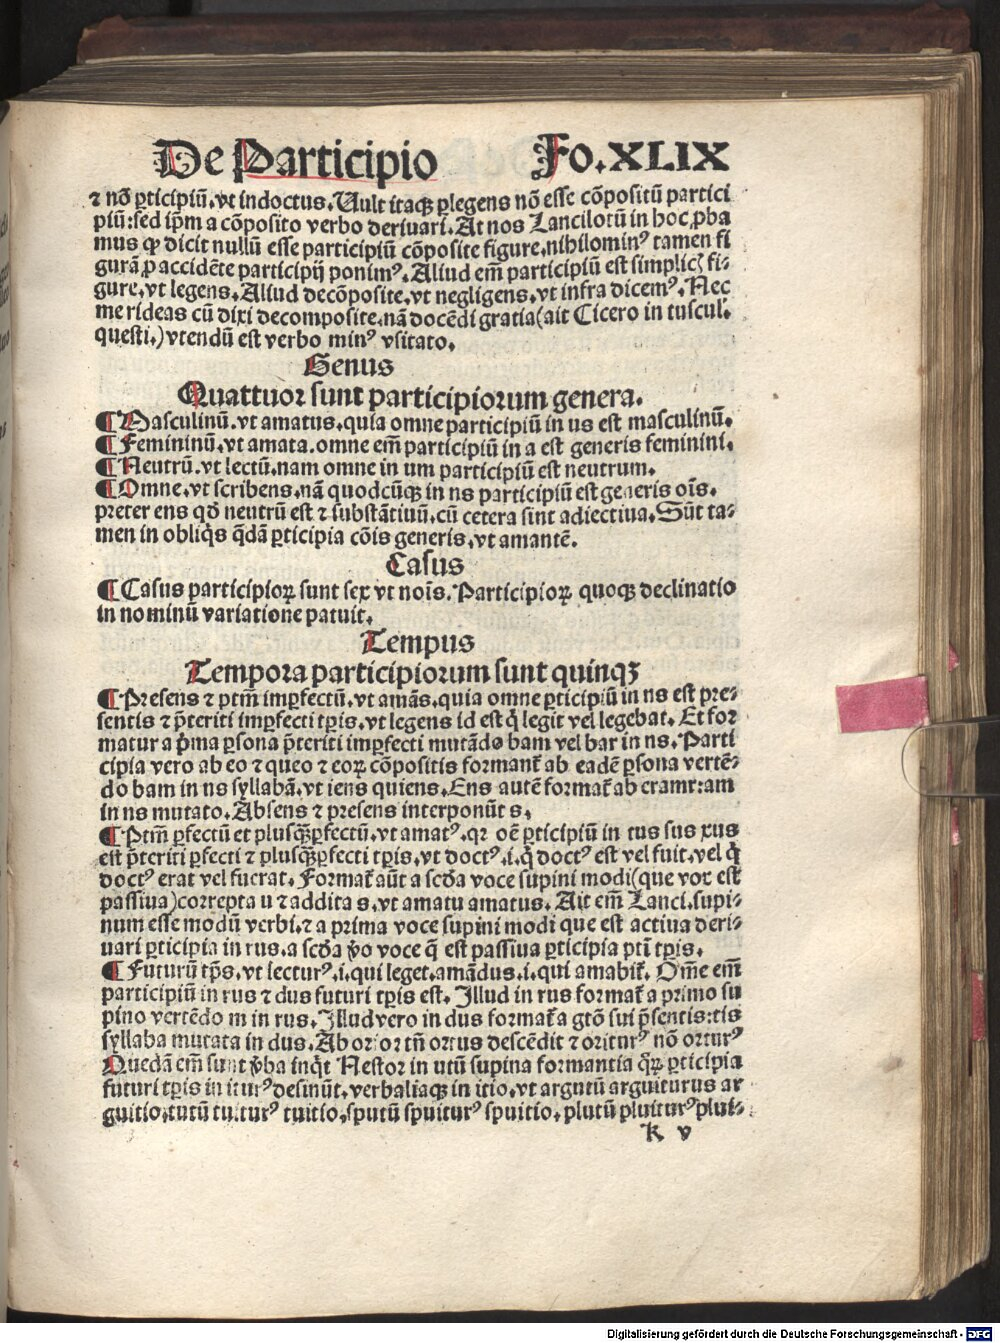 De Participio Fo.XLIX
⁊ nõ ꝑticipiũ.vt indoctus.Uult itaqꝫ ꝑlegens nõ esse cõpositũ partici
piũ:sed ip̃m a cõposito verbo deriuari.At nos Lancilotũ in hoc ꝓba
mus ꝙ dicit nullũ esse participiũ cõposite figure.nihilominꝰ tamen fi
gurã ꝓ accidẽte participij ponimꝰ.Aliud em̃ participiũ est simplicꝭ fi⸗
gure.vt legens.Aliud decõposite.vt negligens.vt infra dicemꝰ.Nec
me rideas cũ dixi decomposite.nã docẽdi gratia(ait Cicero in tuscul.
questi.)vtendũ est verbo minꝰ vsitato.
Genus
Quattuor sunt participiorum genera.
¶Masculinũ.vt amatus.quia omne participiũ in us est masculinũ.
¶Femininũ.vt amata.omne em̃ participiũ in a est generis feminini.
¶Neutrũ.vt lectũ.nam omne in um participiũ est neutrum.
¶Omne.vt scribens.nã quodcũqꝫ in ns participiũ est generis oĩs.
preter ens qđ neutrũ est ⁊ substãtiuũ.cũ cetera sint adiectiua.Sũt ta⸗
men in obliq̃s q̃dã ꝑticipia cõis generis.vt amantẽ.
Casus
¶Casus participioꝝ sunt sex vt noĩs.Participioꝝ quoqꝫ declinatio
in nominũ variatione patuit.
Tempus
Tempora participiorum sunt quinqꝫ
¶Presens ⁊ ptm̃ imꝑfectũ.vt amãs.quia omne ꝑticipiũ in ns est pre⸗
sentis ⁊ p̃teriti imꝑfecti tꝑis.vt legens id est q̇ legit vel legebat.Et for
matur a p̃ma ꝑsona p̃teriti imꝑfecti mutãdo bam vel bar in ns.Parti
cipia vero ab eo ⁊ queo ⁊ eoꝝ cõpositis formant̃ ab eadẽ ꝑsona vertẽ⸗
do bam in ns syllabã.vt iens quiens.Ens autẽ format̃ ab eram:ram
in ns mutato.Absens ⁊ presens interponũt s.
¶Ptm̃ ꝑfectũ et plusqꝫꝑfectũ.vt amatꝰ.qꝛ oẽ ꝑticipiũ in tus sus xus
est p̃teriti ꝑfecti ⁊ plusqꝫꝑfecti tꝑis.vt doctꝰ.i.q̇ doctꝰ est vel fuit.vel q̇
doctꝰ erat vel fuerat.Format̃ aũt a scđa voce supini modi(que vox est
passiua)correpta u ⁊ addita s.vt amatu amatus.Ait em̃ Lanci.supi⸗
num esse modũ verbi.⁊ a prima voce supini modi que est actiua deri⸗
uari ꝑticipia in rus.a scđa v̊o voce q̃ est passiua ꝑticipia pti̇ tꝑis.
¶Futurũ tp̃s.vt lecturꝰ.i.qui leget.amãdus.i.qui amabit̃.Om̃e em̃
participiũ in rus ⁊ dus futuri tꝑis est.Illud in rus format̃ a primo su
pino vertẽdo m in rus.Illud vero in dus format̃ a gtõ sui p̃sentis:tis
syllaba mutata in dus.Ab orior tñ ortus descẽdit ⁊ oriturꝰ nõ orturꝰ
Quedã em̃ sunt v̊ba inq̇t Nestor in utũ supina formantia q̃ꝝ ꝑticipia
futuri tꝑis in iturꝰ desinũt.verbaliaqꝫ in itio.vt argutũ arguiturus ar
guitio.tutũ tuiturꝰ tuitio.sputũ spuiturꝰ spuitio.plutũ pluiturꝰ plui⸗
k v
Digitalisierung gefördert durch die Deutsche Forschungsgemeinschaft - DFG